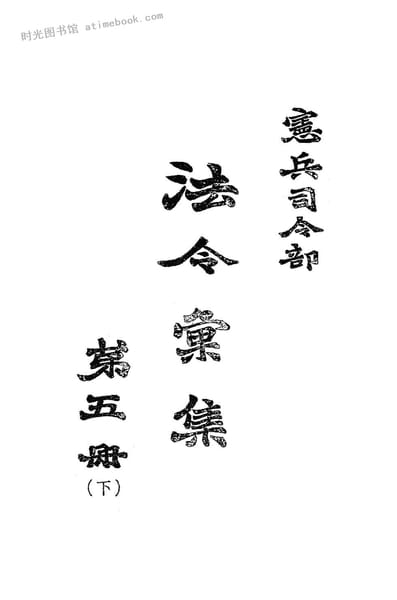 时光图书馆 atimebook.com
憲兵司令部
法令彙集
第五冊
(下)